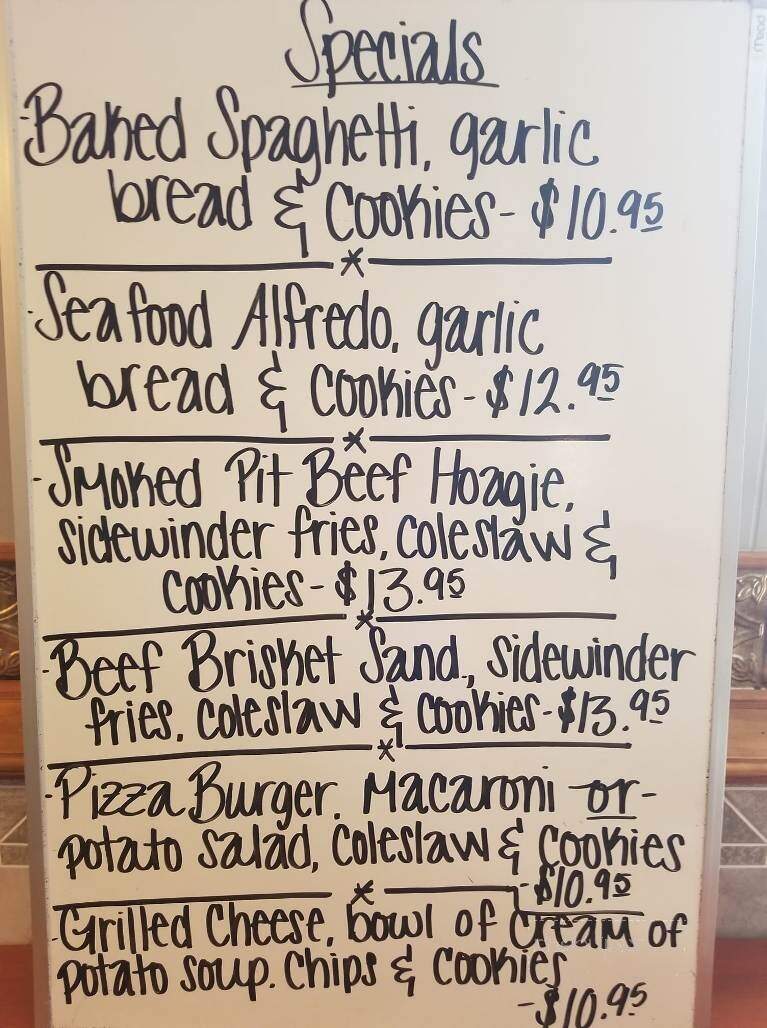 Specials
- Baked Spaghetti, garlic
bread & Cookies - $10.95
*
- Seafood Alfredo, garlic
bread & Cookies - $12.95
*
- Smoked Pit Beef Hoagie,
sidewinder fries, coleslaw &
cookies - $13.95
*
- Beef Brisket Sand., sidewinder
fries, coleslaw & cookies - $13.95
*
- Pizza Burger, Macaroni -or-
potato salad, coleslaw & Cookies
- $10.95
*
- Grilled Cheese, bowl of Cream of
potato soup. Chips & Cookies
- $10.95